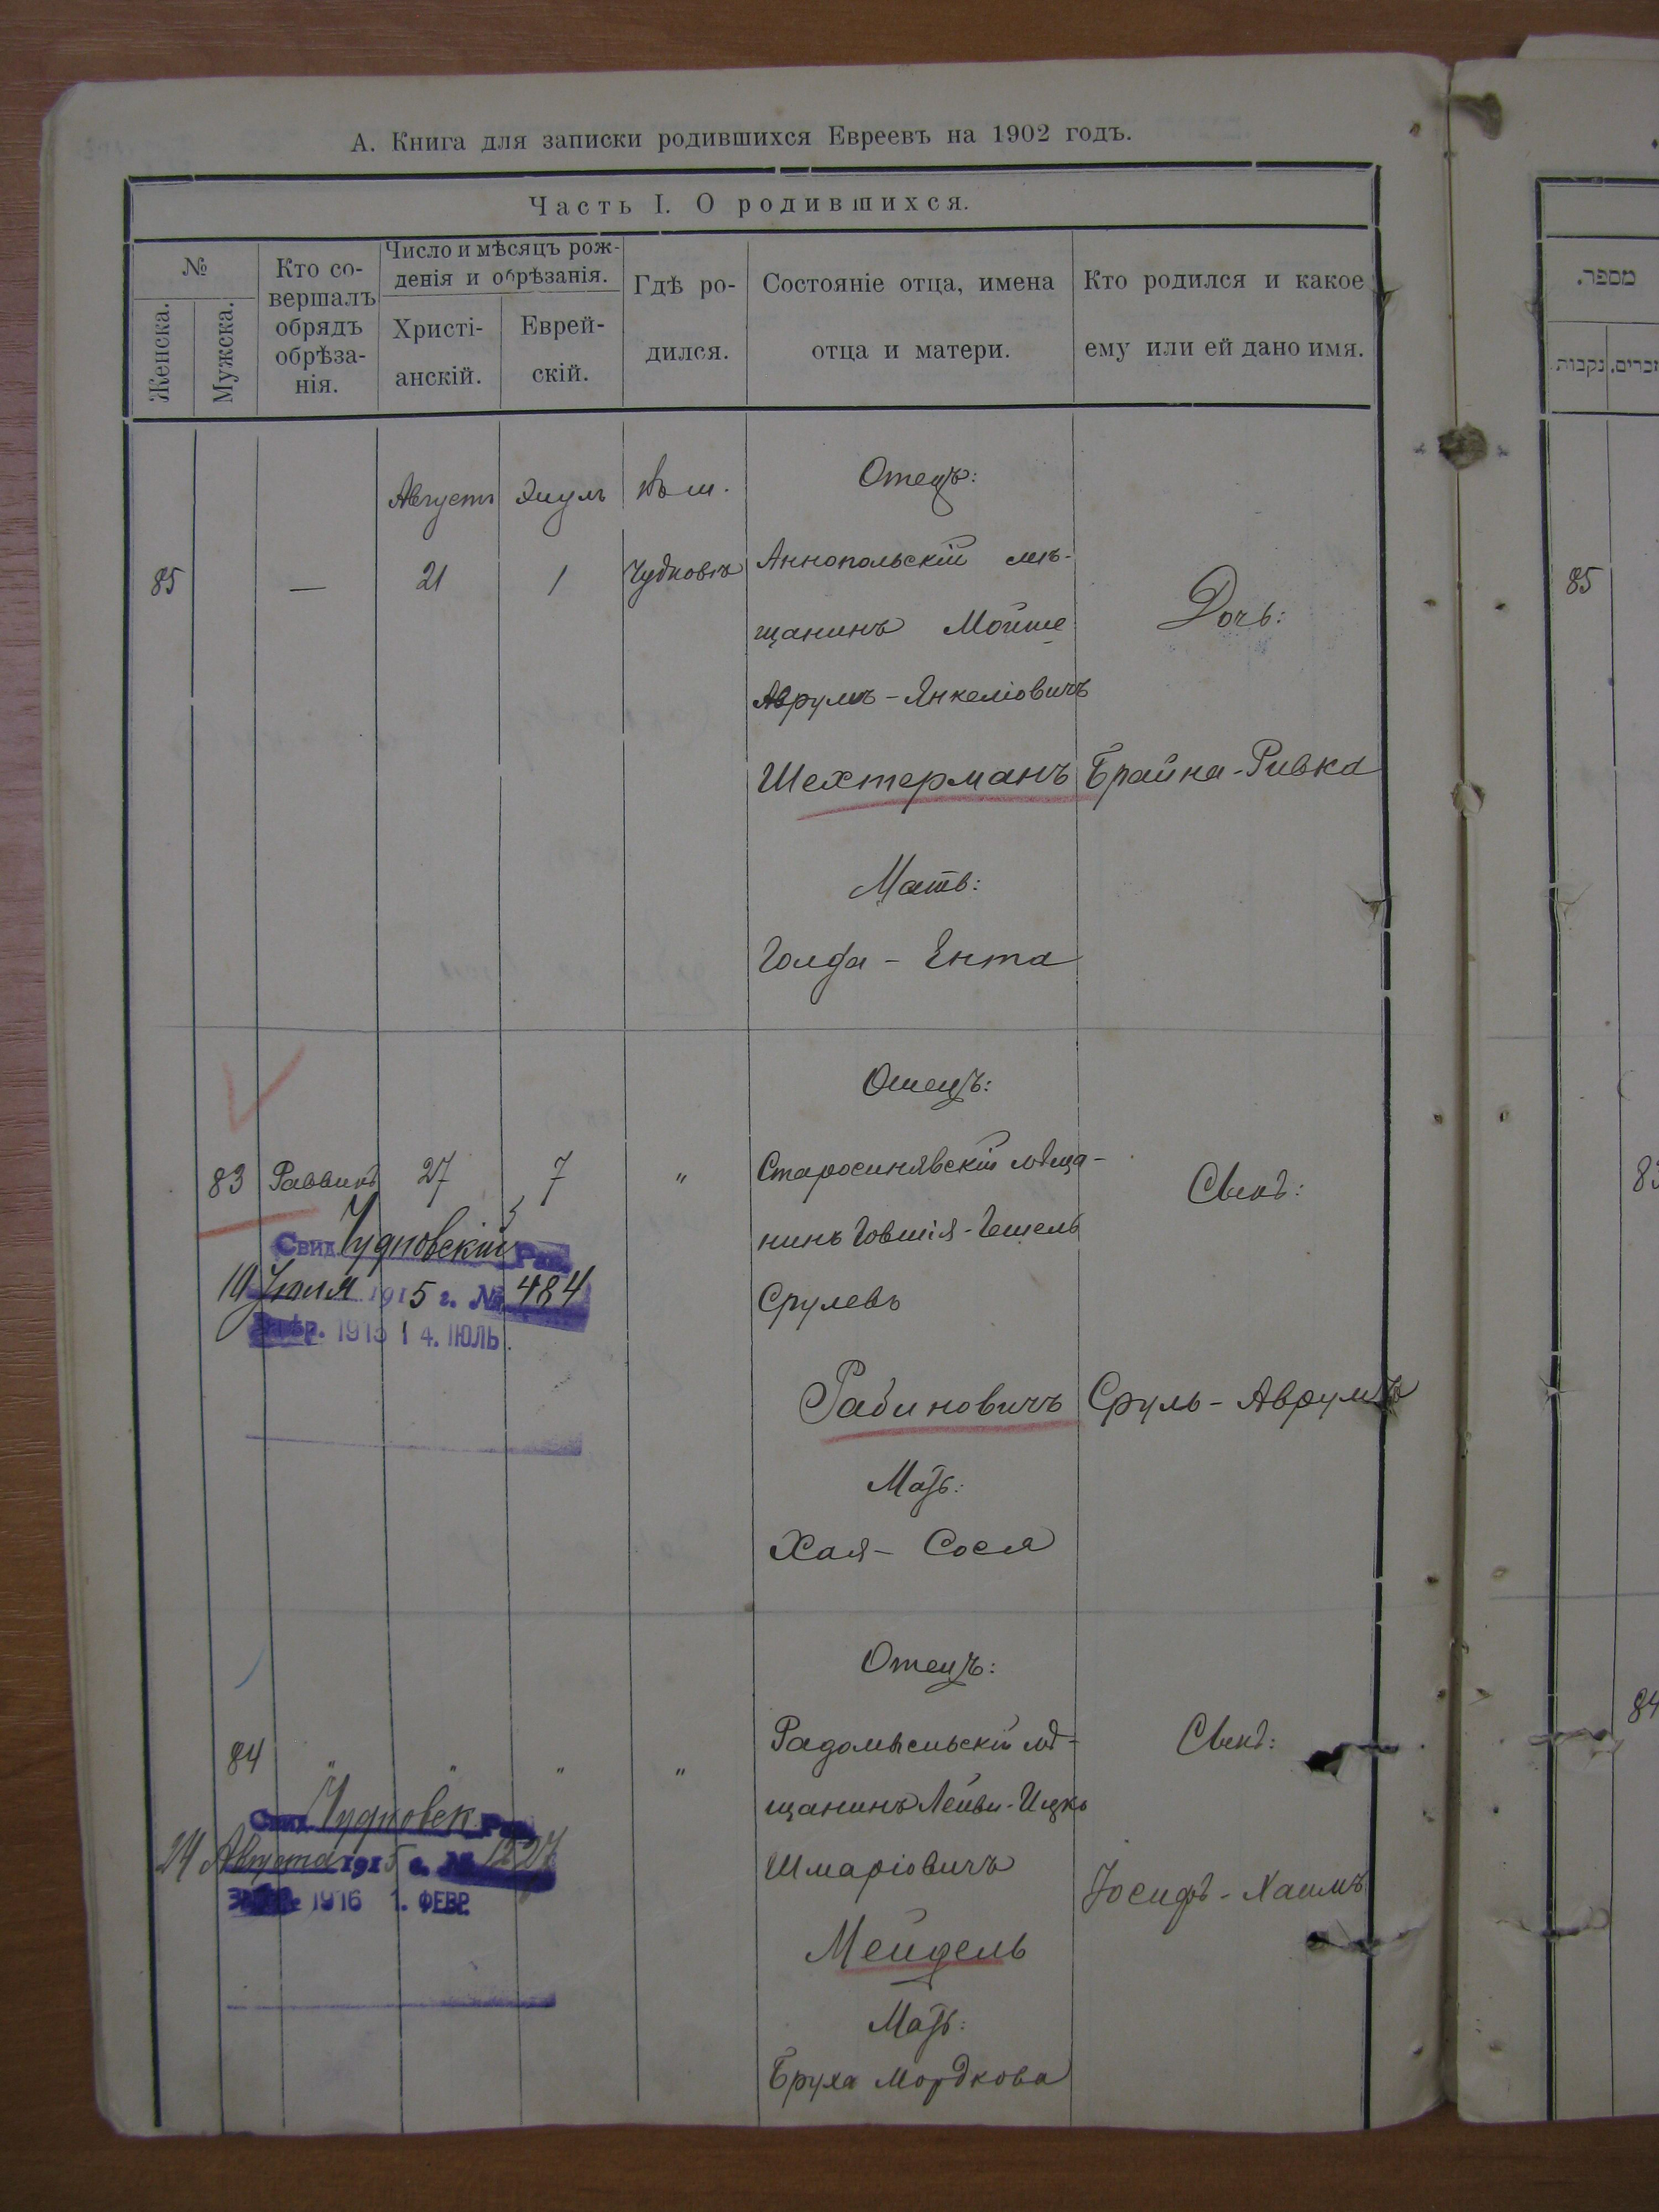 А. Книга для записки родившихся Евреевъ на 1902 годъ.
Часть I. О родившихся.
№
Женска.
Мужска.
Кто со-
вершалъ
обрядъ
обрѣза-
нія.
Число и мѣсяцъ рож-
денія и обрѣзанія.
Христі-
анскій.
Еврей-
скій.
Гдѣ ро-
дился.
Состояніе отца, имена
отца и матери.
Кто родился и какое
ему или ей дано имя.
מספר.
נקבות.
זכרים.
Августъ Элулъ Въ м. Отецъ:
85 — 21 1 Чудновѣ Аннопольскій мѣ-
щанинъ Мойше Дочь:
Аврумъ-Янкеліовичъ
Шехтерманъ Брайна-Ривка
Мать:
Голда - Ента
85
Отецъ:
83 Раввинъ 27 7 " Старосинявскій мѣща-
нинъ Іовшія-Гешель Сынъ:
Срулевъ
Рабиновичъ Сруль-Аврумъ
Мать:
Хая - Сося
Свид. Чудновскій Рав.
19 Іюля 1915 г. № 484
1915 14. ІЮЛЬ.
83
Отецъ:
84 " " " " Радомысльскій мѣ- Сынъ:
щанинъ Лейви-Ицко
Шмаріовичъ
Іосифъ-Хаимъ
Мейдель
Мать:
Бруха Мордкова
Свид. Чудновск. Рав.
24 Августа 1915 г. № 1227
1916 1. ФЕВР.
84